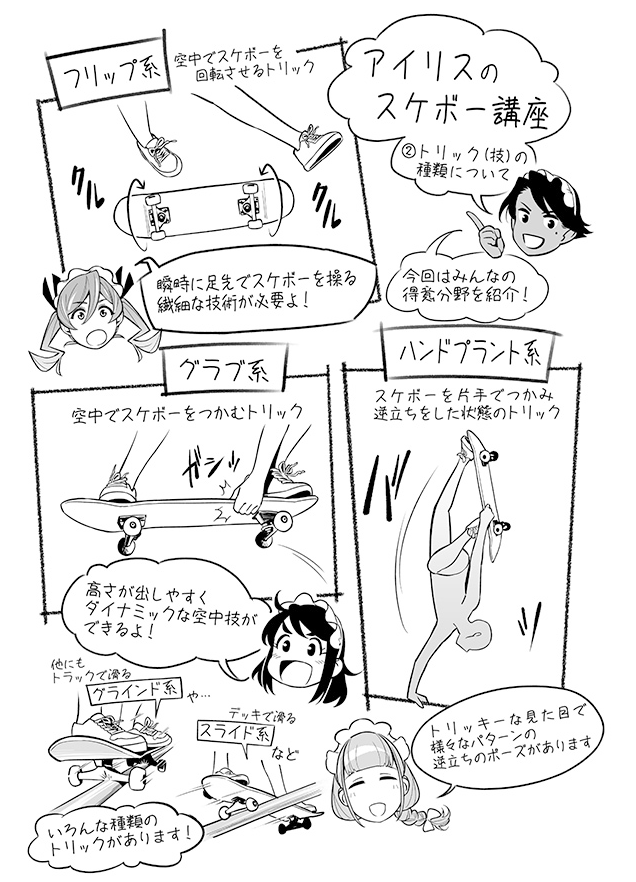 アイリスの
スケボー講座
②トリック(技)の
種類について
今回はみんなの
得意分野を紹介!
フリップ系
空中でスケボーを
回転させるトリック
クルッ
クルッ
瞬時に足先でスケボーを操る
繊細な技術が必要よ!
ハンドプラント系
スケボーを片手でつかみ
逆立ちをした状態のトリック
バッ
トリッキーな見た目で
様々なパターンの
逆立ちのポーズがあります
グラブ系
空中でスケボーをつかむトリック
ガシッ
高さが出しやすく
ダイナミックな空中技が
できるよ!
他にも
トラックで滑る
グラインド系
や…
デッキで滑る
スライド系
など
いろんな種類の
トリックがあります!